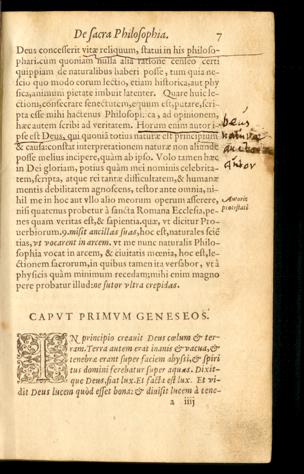 De sacra Philosophia. 7
Deus concesserit vitæ reliquum, statui in his philoso-
phari. cum quoniam nulla alia ratione censeo certi
quippiam de naturalibus haberi posse, tum quia ne-
scio quo modo eorum lectio, etiam historica, aut phy
sica, animum pietate imbuit latenter. Quare huic le-
ctioni, consecrare senectutem, æquum est, putare, scri-
pta esse mihi hactenus Philosophica, ad opinionem,
hæc autem scribi ad veritatem. Horum enim autor i-
pse est Deus, qui quoniã totius naturæ est principium
& causa: constat interpretationem naturæ non aliunde
posse melius incipere, quàm ab ipso. Volo tamen hæc
in Dei gloriam, potius quàm mei nominis celebrita-
tem, scripta, atque rei tantæ difficultatem, & humanæ
mentis debilitatem agnoscens, testor ante omnia, ni-
hil me in hoc aut vllo alio meorum operum asserere,
nisi quatenus probetur à sancta Romana Ecclesia, pe-
nes quam veritas est, & sapientia, quæ, vt dicitur Pro-
uerbiorum. 9. misit ancillas suas, hoc est, naturales sciē
tias, vt vocarent in arcem. vt me nunc naturalis Philo-
sophia vocat in arcem, & ciuitatis mœnia, hoc est, le-
ctionem sacrorum, in quibus tamen ita versabor, vt à
physicis quàm minimum recedam; mihi enim magno
pere probatur illud: ne sutor vltra crepidas.
Deus
naturæ
author
Autoris
protestatio
CAPVT PRIMVM GENESEOS.
IN principio creauit Deus cœlum & ter-
ram. Terra autem erat inanis & vacua, &
tenebræ erant super faciem abyssi, & spiri
tus domini ferebatur super aquas. Dixit-
que Deus, fiat lux. Et facta est lux. Et vi-
dit Deus lucem quòd esset bona: & diuisit lucem à tene-
a iiij